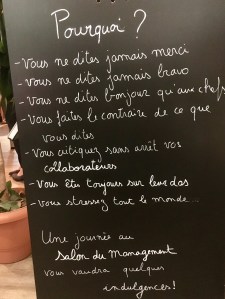 Pourquoi ?
- vous ne dites jamais merci
- vous ne dites jamais bravo
- vous ne dites bonjour qu'aux chefs
- vous faites le contraire de ce que
vous dites
- vous critiquez sans arrêt vos
collaborateurs
- vous êtes toujours sur leur dos
- vous stressez tout le monde...
Une journée au
Salon du Management
vous vaudra quelques
indulgences !